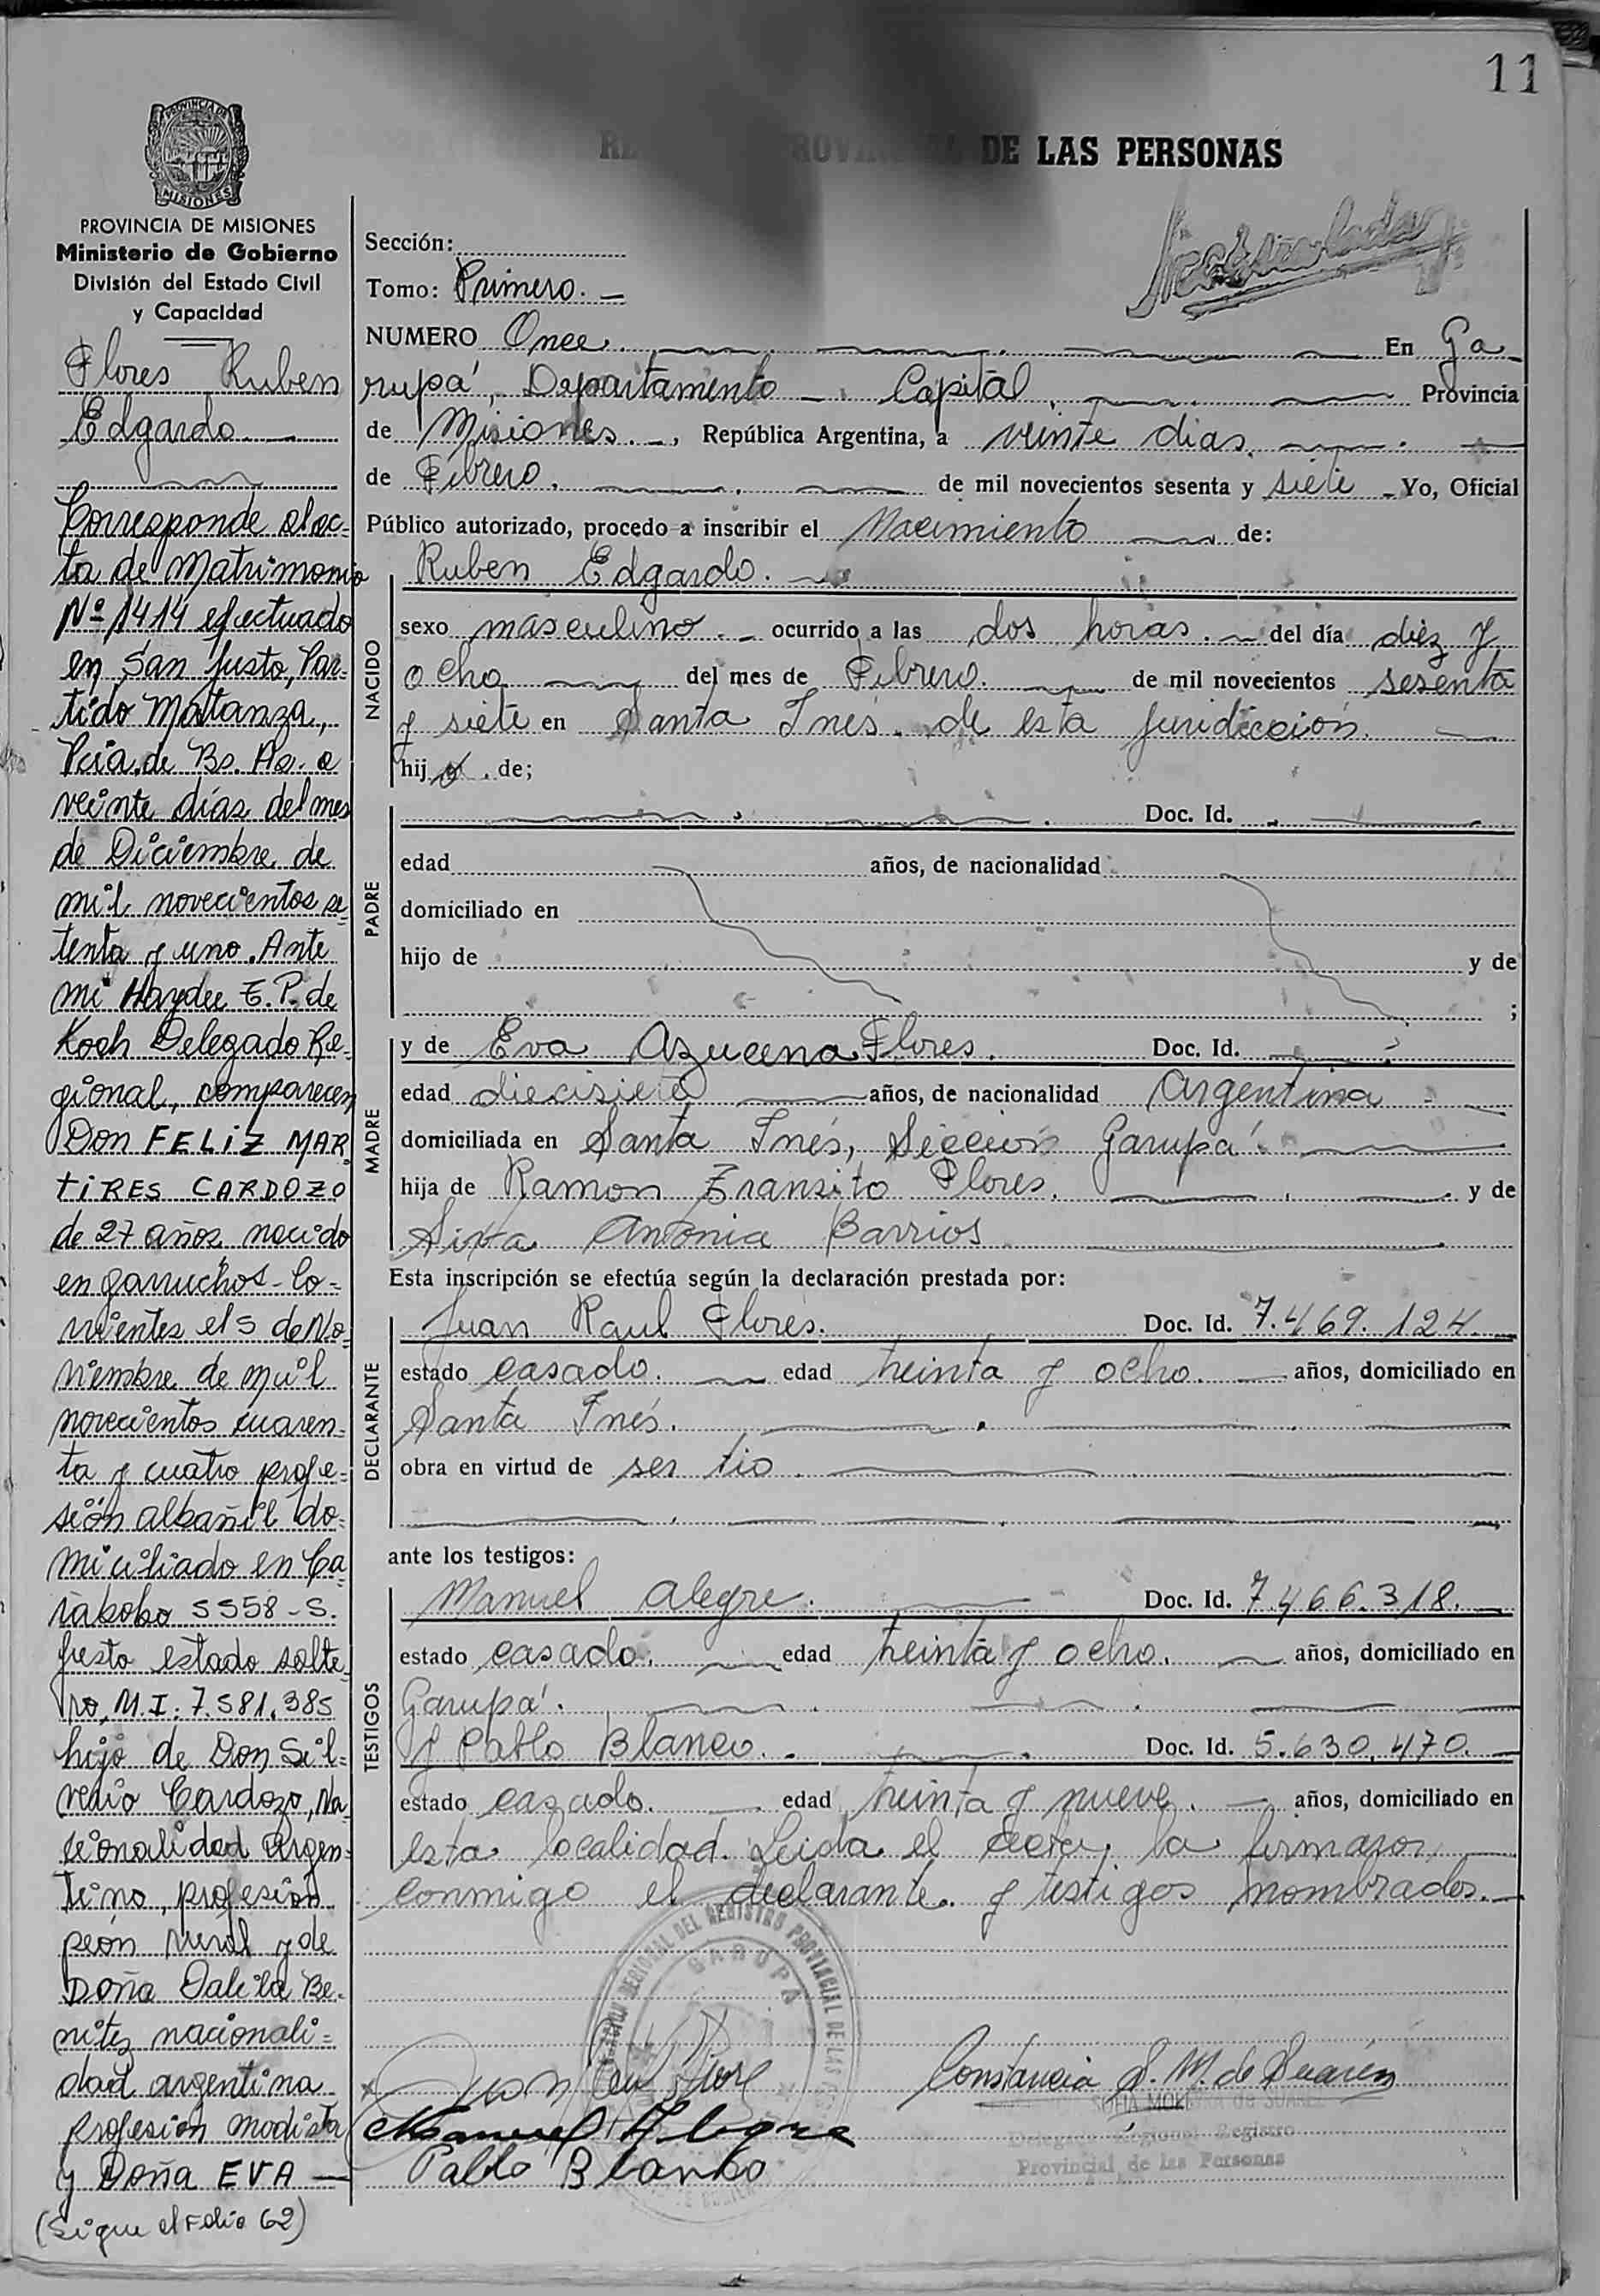 11
PROVINCIA DE
MISIONES
DE LAS PERSONAS
PROVINCIA DE MISIONES
Ministerio de Gobierno
División del Estado Civil
y Capacidad
Flores Ruben
Edgardo.
Corresponde al ac-
ta de Matrimonio
Nº 1414 efectuado
en San Justo, Par-
tido Matanza,
Pcia. de Bs. As. a
veinte días del mes
de Diciembre de
mil novecientos se-
tenta y uno. Ante
mi Haydee E. P. de
Koch Delegado Re-
gional, comparecen
Don FELIZ MAR
TIRES CARDOZO
de 27 años nacido
en garruchos - Co-
rrientes el 5 de No-
viembre de mil
novecientos cuaren-
ta y cuatro profe-
sión albañil do-
miciliado en Ca
rabobo 5558 - S.
Justo estado solte
ro, M.I: 7.581.385
hijo de Don Sil-
verio Cardozo, Na-
cionalidad Argen-
tino, profesión
peón rural y de
Doña Dalila Be-
nitez nacionali-
dad argentina
profesión modista
y Doña EVA
(Sigue el Folio 62)
Sección:
Tomo: Primero.
NUMERO Once. En Ga
rupá, Departamento Capital, Provincia
de Misiones., República Argentina, a veinte dias,
de Febrero. de mil novecientos sesenta y siete Yo, Oficial
Público autorizado, procedo a inscribir el Nacimiento de:
Ruben Edgardo.
NACIDO
sexo masculino. ocurrido a las dos horas. del día diez y
ocho del mes de Febrero. de mil novecientos sesenta
y siete en Santa Inés. de esta juridicción.
hijo. de;
PADRE
Doc. Id.
edad años, de nacionalidad
domiciliado en
hijo de y de
;
MADRE
y de Eva Azucena Flores. Doc. Id.
edad diecisiete años, de nacionalidad Argentina
domiciliada en Santa Inés, Sección Garupá.
hija de Ramon Transito Flores. y de
Sixta Antonia Barrios
Esta inscripción se efectúa según la declaración prestada por:
DECLARANTE
Juan Raul Flores. Doc. Id. 7.469.124.
estado casado. edad treinta y ocho. años, domiciliado en
Santa Inés.
obra en virtud de ser tio.
ante los testigos:
TESTIGOS
Manuel Alegre. Doc. Id. 7.466.318.
estado casado. edad treinta y ocho. años, domiciliado en
Garupá.
y Pablo Blanco. Doc. Id. 5.630.470.
estado casado. edad treinta y nueve. años, domiciliado en
esta localidad. Leida el acta, la firmaron
conmigo el declarante. y testigos nombrados.
REGIONAL DEL REGISTRO PROVINCIAL DE LAS
GARUPA
Constancia S. M. de Suarez
Manuel Alegre
Delegado Regional Registro
Pablo Blanco
Provincial de las Personas